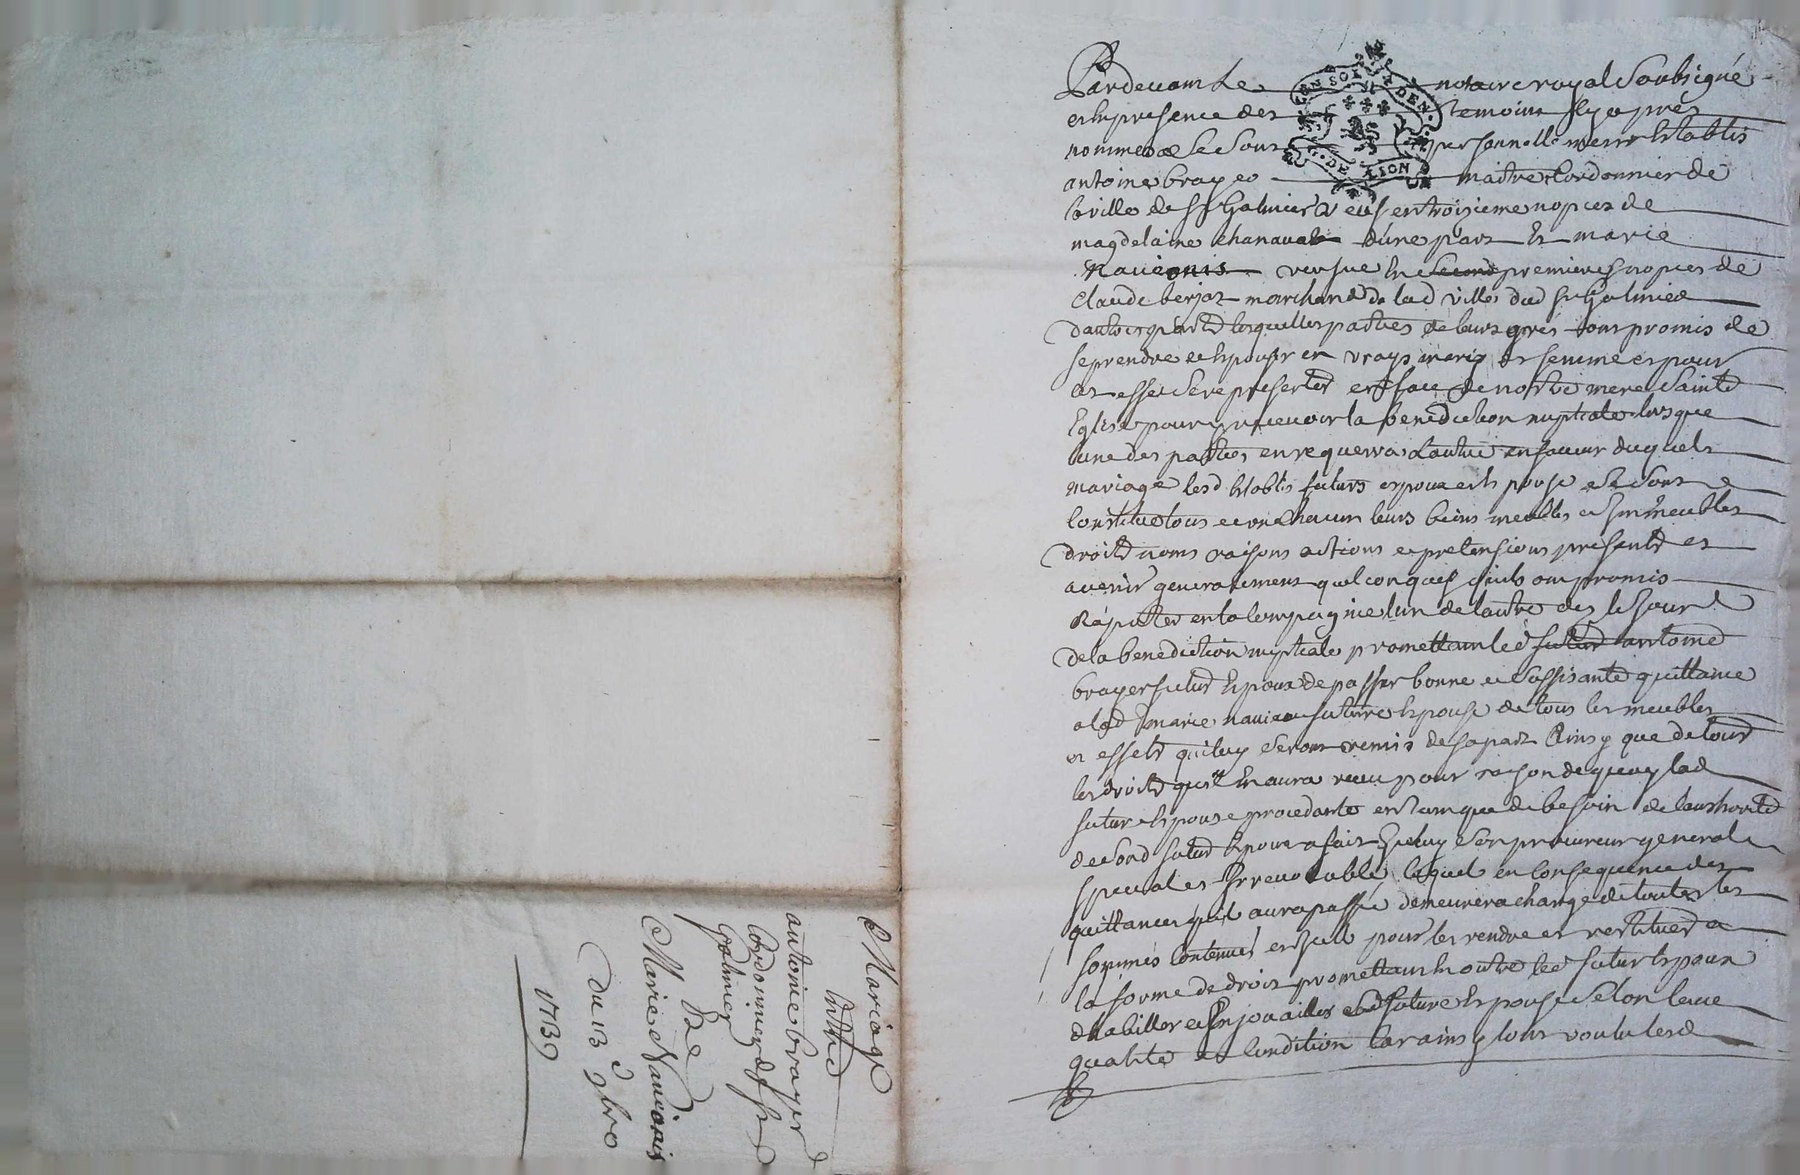 Pardevant Le notaire royal Soubsigné
et En presence des temoins Sy apres
nommes Se Sont personnellement Establis
antoine brayer maitre Cordonnier de
la ville de St Galmier Veuf en troisieme nopces de
magdelaine Chanavat d'une part Et marie
Naucanis vefve En second premieres nopces de
Claude berjat marchand de lad ville dud St Galmier
dautre part lesquelles parties de leurs grés ont promis de
se prendre et Epouser en vrays maris et femme et pour
cet effet Se representer en face de nostre mere Sainte
Eglise pour y recevoir la benediction nuptiale lorsque
lune des parties en requerra Lautre en faveur duquel
mariage lesd Establis futurs epoux et Epouse Se Sont
Constitue tous et un chacun leurs biens meubles et Immeubles
droits noms raisons actions et pretensions presents et
avenir generalement quelconques quils ont promis
Raporter en la Compagnie lun de lautre des le jour
de la benediction nuptiale promettant led futur antoine
brayer futur Epoux de passer bonne et Suffisante quittance
a lad marie future Epouse de tous les meubles
et effets qui luy Seront remis de sa part Ainsy que de tous
les droits quil En aura receu pour raison de quoy lad
future Epouse procedante en tant que de besoin de lauthorité
de Sond futur Epoux a fait Iceluy Son procureur general
special et Irrevocable lequel en Consequence des
quittances quil aura passé demeurera chargé de toutes les
sommes Contenues en Icelles pour les rendre et restituer a
la forme de droit promettant En outre led futur Epoux
dhabiller et Enjoailler Sad future Epouse Selon leur
qualité et Condition Car ainsy lont voulu lesd
Mariage
Entre
antoine brayer
Cordonnier de St
Galmier
Et
Marie Naucanis
Du 13 9bre
1739
GEN
DE LION